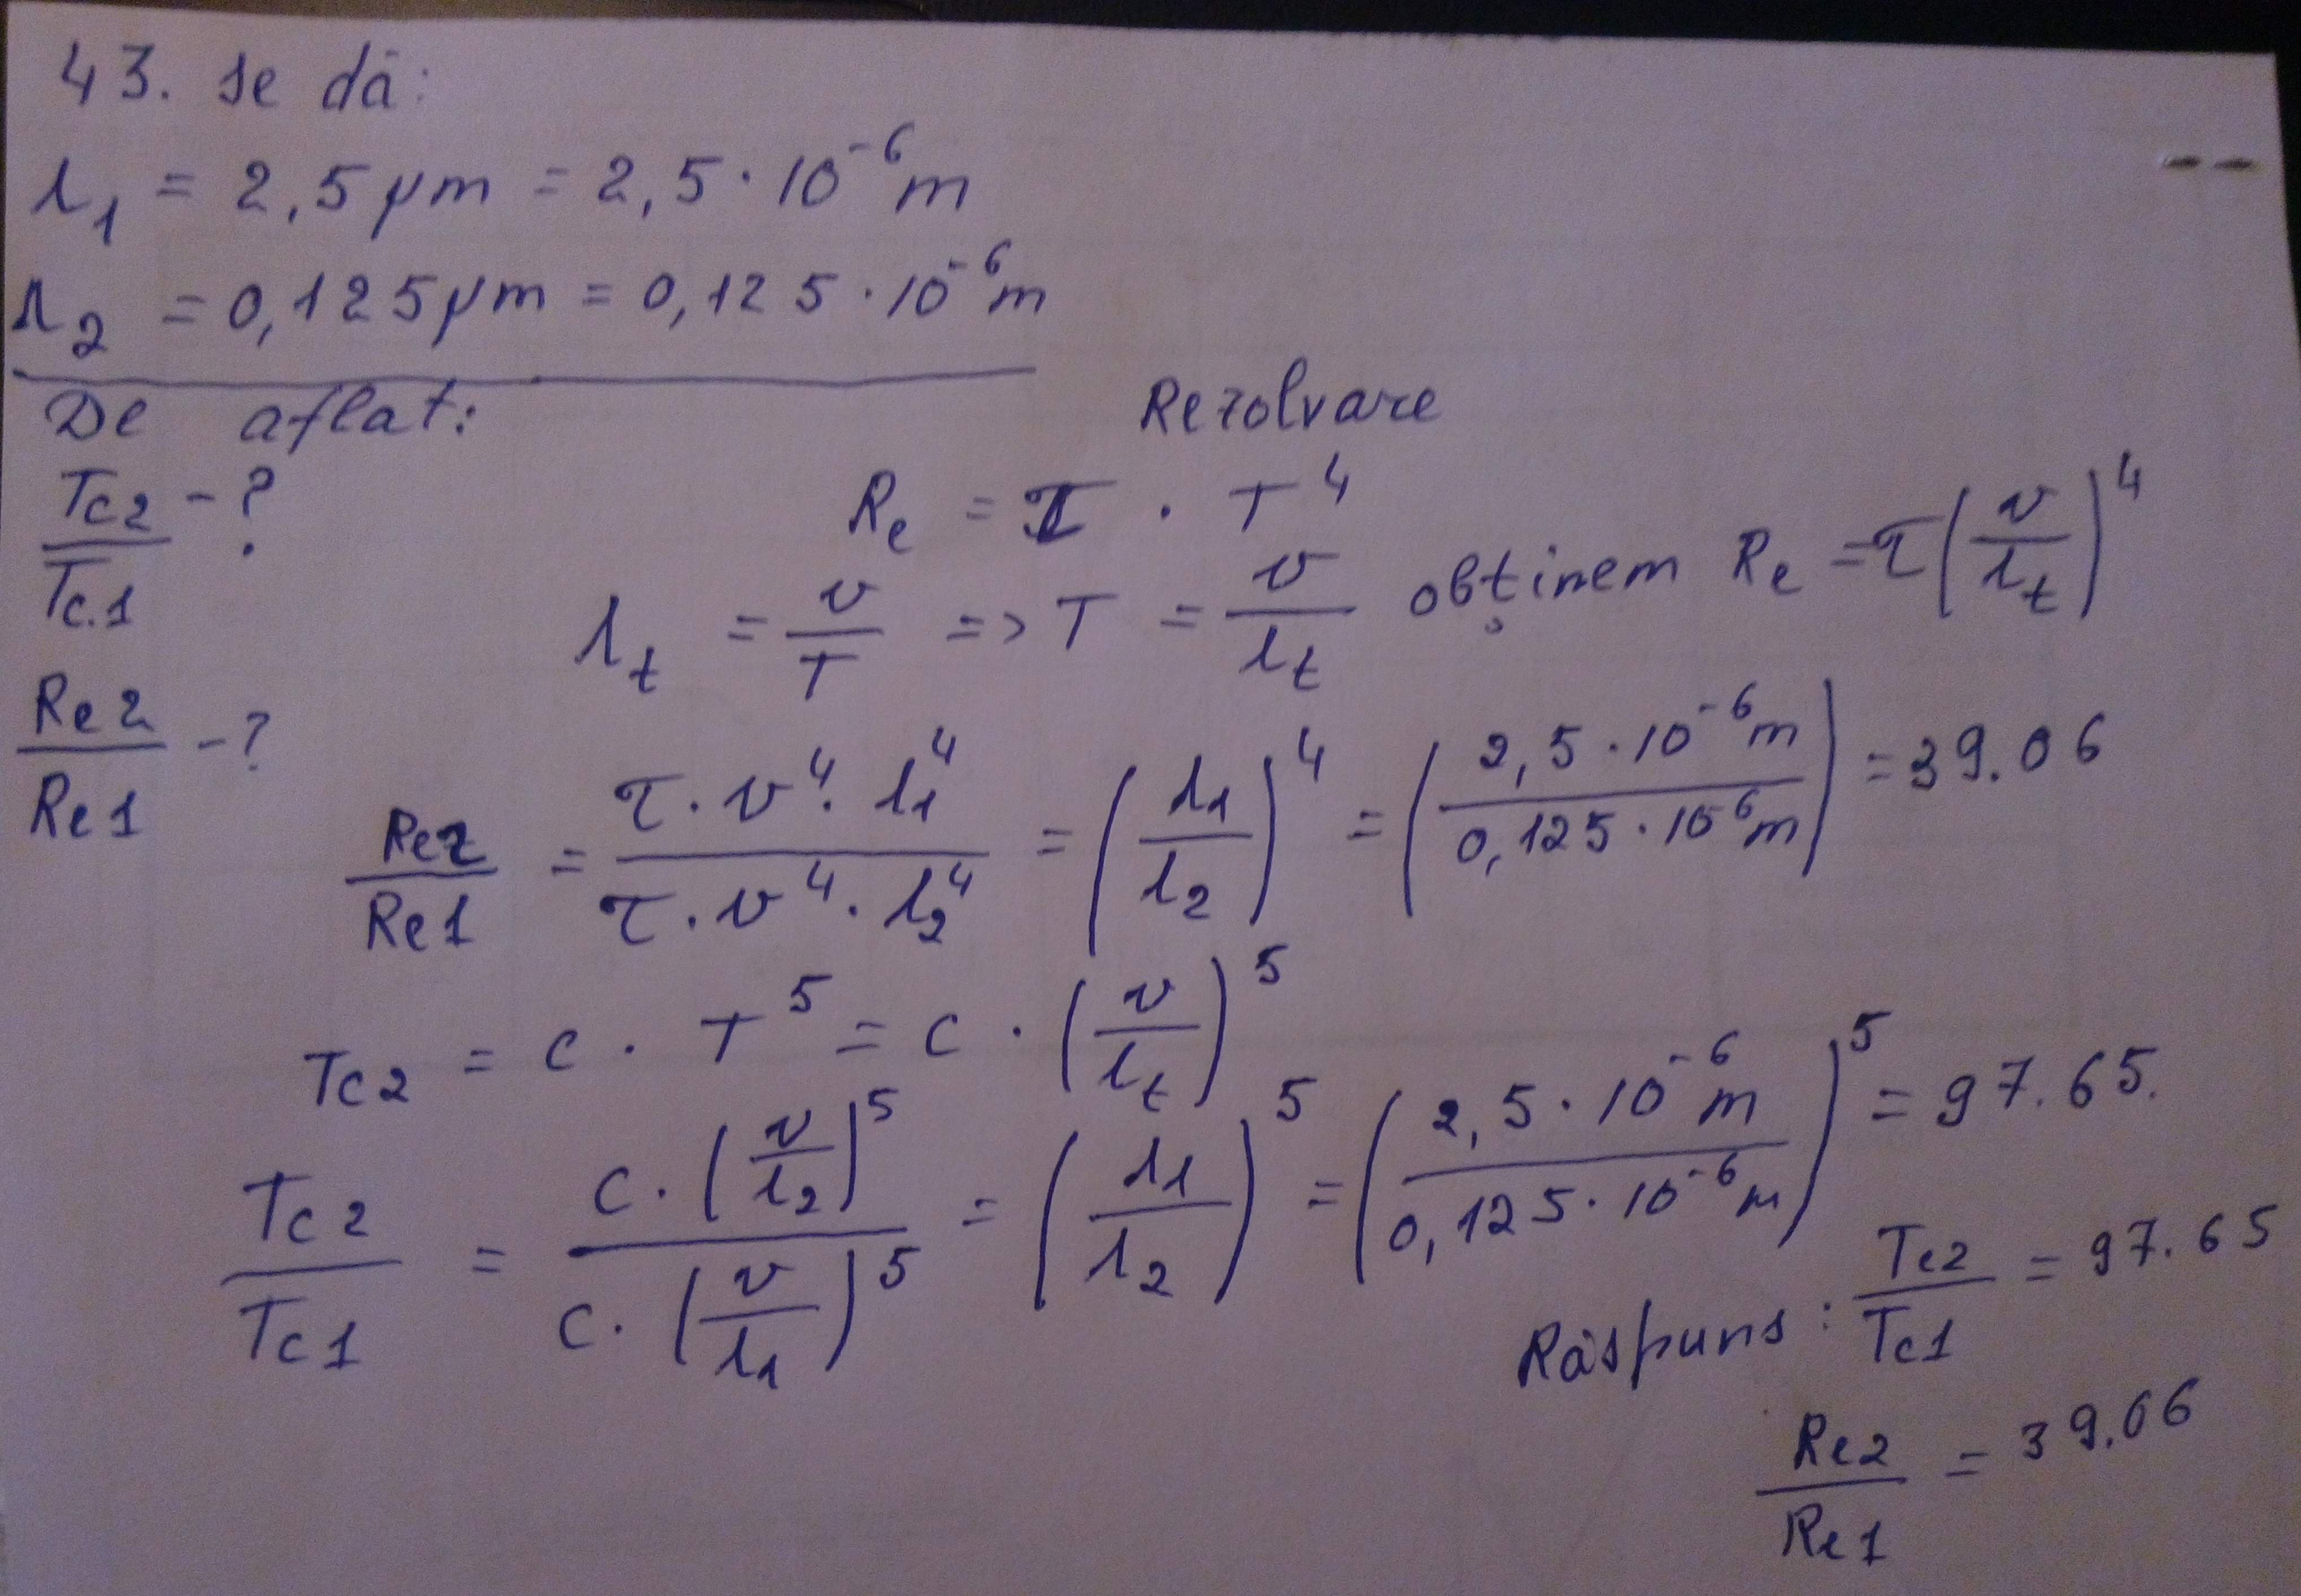 43. Se dă:
λ₁ = 2,5 μm = 2,5 · 10⁻⁶ m
λ₂ = 0,125 μm = 0,125 · 10⁻⁶ m
De aflat:
Tc2/Tc.1 - ?
Re2/Re1 - ?
Rezolvare
Re = τ · T⁴
λt = v/T => T = v/λt obținem Re = τ(v/λt)⁴
Re2/Re1 = τ · v⁴ · λ₁⁴ / τ · v⁴ · λ₂⁴ = (λ₁/λ₂)⁴ = (2,5 · 10⁻⁶ m / 0,125 · 10⁻⁶ m) = 39.06
Tc2 = c · T⁵ = c · (v/λt)⁵
Tc2/Tc1 = c · (v/λ₂)⁵ / c · (v/λ₁)⁵ = (λ₁/λ₂)⁵ = (2,5 · 10⁻⁶ m / 0,125 · 10⁻⁶ m)⁵ = 97.65.
Răspuns: Tc2/Tc1 = 97.65
Re2/Re1 = 39.06